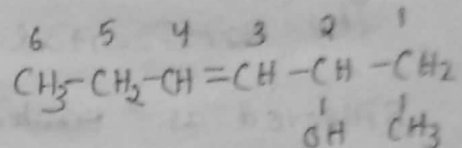 6 5 4 3 2 1
CH3-CH2-CH=CH-CH-CH2
OH CH3